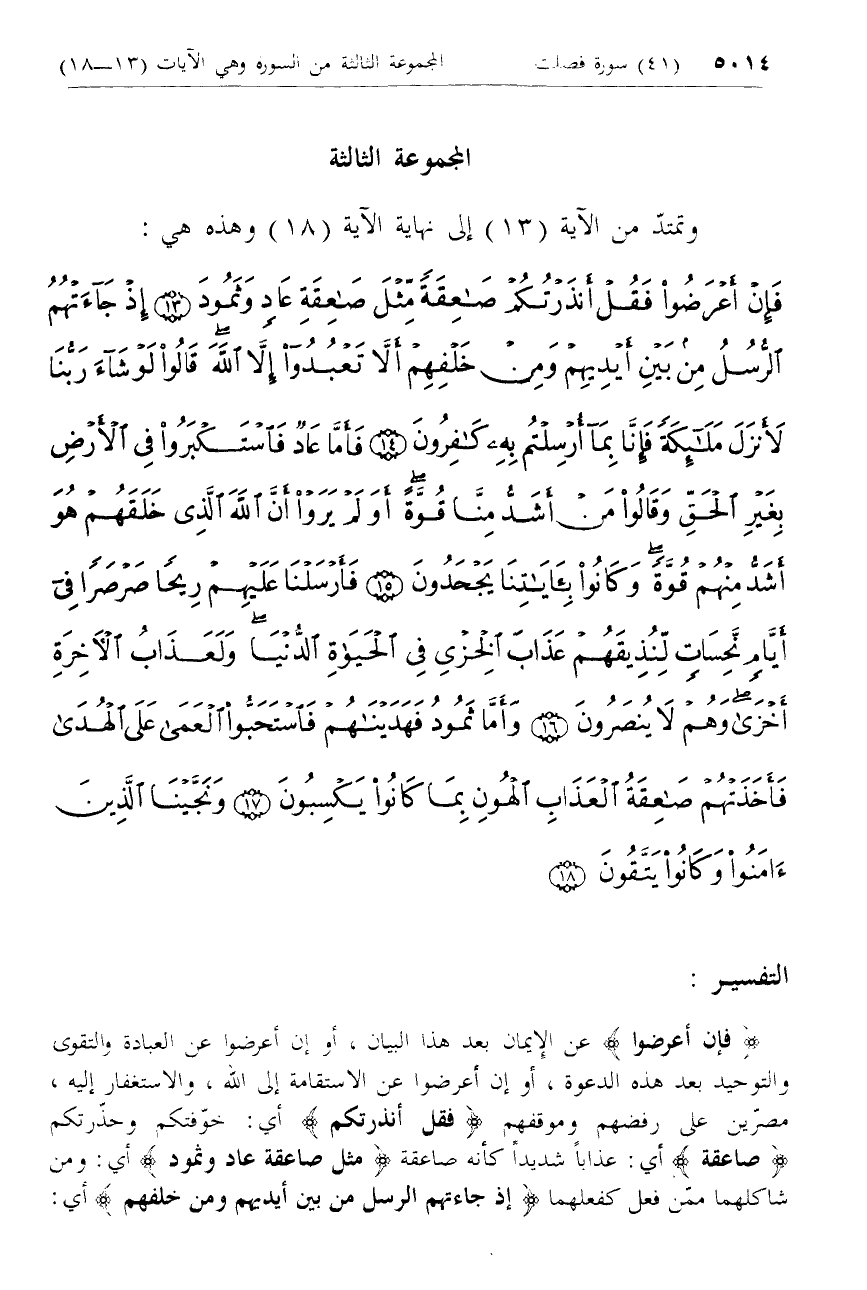 ٥٠١٤ (٤١) سورة فصلت المجموعة الثالثة من السوره وهي الآيات (١٣—١٨)
المجموعة الثالثة
وتمتدّ من الآية (١٣) إلى نهاية الآية (١٨) وهذه هي :
فَإِنْ أَعْرَضُوا۟ فَقُلْ أَنذَرْتُكُمْ صَـٰعِقَةً مِّثْلَ صَـٰعِقَةِ عَادٍ وَثَمُودَ ﴿١٣﴾ إِذْ جَآءَتْهُمُ
ٱلرُّسُلُ مِنۢ بَيْنِ أَيْدِيهِمْ وَمِنْ خَلْفِهِمْ أَلَّا تَعْبُدُوٓا۟ إِلَّا ٱللَّهَ ۖ قَالُوا۟ لَوْ شَآءَ رَبُّنَا
لَأَنزَلَ مَلَـٰٓئِكَةً فَإِنَّا بِمَآ أُرْسِلْتُم بِهِۦ كَـٰفِرُونَ ﴿١٤﴾ فَأَمَّا عَادٌ فَٱسْتَكْبَرُوا۟ فِى ٱلْأَرْضِ
بِغَيْرِ ٱلْحَقِّ وَقَالُوا۟ مَنْ أَشَدُّ مِنَّا قُوَّةً ۖ أَوَلَمْ يَرَوْا۟ أَنَّ ٱللَّهَ ٱلَّذِى خَلَقَهُمْ هُوَ
أَشَدُّ مِنْهُمْ قُوَّةً ۖ وَكَانُوا۟ بِـَٔايَـٰتِنَا يَجْحَدُونَ ﴿١٥﴾ فَأَرْسَلْنَا عَلَيْهِمْ رِيحًا صَرْصَرًا فِىٓ
أَيَّامٍ نَّحِسَاتٍ لِّنُذِيقَهُمْ عَذَابَ ٱلْخِزْىِ فِى ٱلْحَيَوٰةِ ٱلدُّنْيَا ۖ وَلَعَذَابُ ٱلْـَٔاخِرَةِ
أَخْزَىٰ ۖ وَهُمْ لَا يُنصَرُونَ ﴿١٦﴾ وَأَمَّا ثَمُودُ فَهَدَيْنَـٰهُمْ فَٱسْتَحَبُّوا۟ ٱلْعَمَىٰ عَلَى ٱلْهُدَىٰ
فَأَخَذَتْهُمْ صَـٰعِقَةُ ٱلْعَذَابِ ٱلْهُونِ بِمَا كَانُوا۟ يَكْسِبُونَ ﴿١٧﴾ وَنَجَّيْنَا ٱلَّذِينَ
ءَامَنُوا۟ وَكَانُوا۟ يَتَّقُونَ ﴿١٨﴾
التفسير :
﴿ فإن أعرضوا ﴾ عن الإيمان بعد هذا البيان ، أو إن أعرضوا عن العبادة والتقوى
والتوحيد بعد هذه الدعوة ، أو إن أعرضوا عن الاستقامة إلى الله ، والاستغفار إليه ،
مصرّين على رفضهم وموقفهم ﴿ فقل أنذرتكم ﴾ أي : خوّفتكم وحذّرتكم
﴿ صاعقة ﴾ أي : عذاباً شديداً كأنه صاعقة ﴿ مثل صاعقة عاد وثمود ﴾ أي : ومن
شاكلهما ممّن فعل كفعلهما ﴿ إذ جاءتهم الرسل من بين أيديهم ومن خلفهم ﴾ أي :